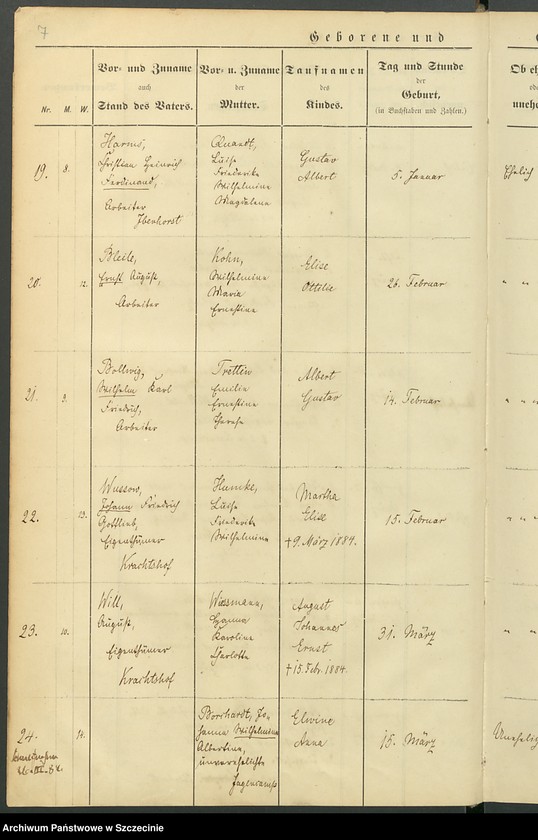 7
Geborene und
Nr. M. W.
Vor- und Zuname
auch
Stand des Vaters.
Vor- u. Zuname
der
Mutter.
Taufnamen
des
Kindes.
Tag und Stunde
der
Geburt,
(in Buchstaben und Zahlen.)
Ob eh
ode
unehe
19. 8.
Harms,
Christian Heinrich
Ferdinand,
Arbeiter
Quandt,
Luise
Friederike
Wilhelmine
Magdalena
Gustav
Albert
5. Januar
Ehelich
20. 12.
Ernst August,
Arbeiter
Kohn,
Wilhelmine
Marie
Ernestine
Elise
Ottilie
26. Februar
" "
21. 9.
Bollwig,
Wilhelm Karl
Friedrich,
Arbeiter
Trettin
Emilie
Ernestine
Therese
Albert
Gustav
14. Februar
" "
22. 13.
Wussow,
Johann Friedrich
Gottlieb,
Eigenthümer
Krachtshof
Luise
Friederike
Wilhelmine
Martha
Elise
† 9. März 1884.
15. Februar
" "
23. 10.
Will,
August,
Eigenthümer
Krachtshof
Wiessmann,
Hanna
Karoline
Charlotte
August
Johannes
Ernst
† 15. Febr. 1884.
31. März
" "
24. 14.
Borchardt, Jo-
hanna Wilhelmine
Albertine,
unverehelichte
Elwine
Anna
15. März
Unehelig
Archiwum Państwowe w Szczecinie